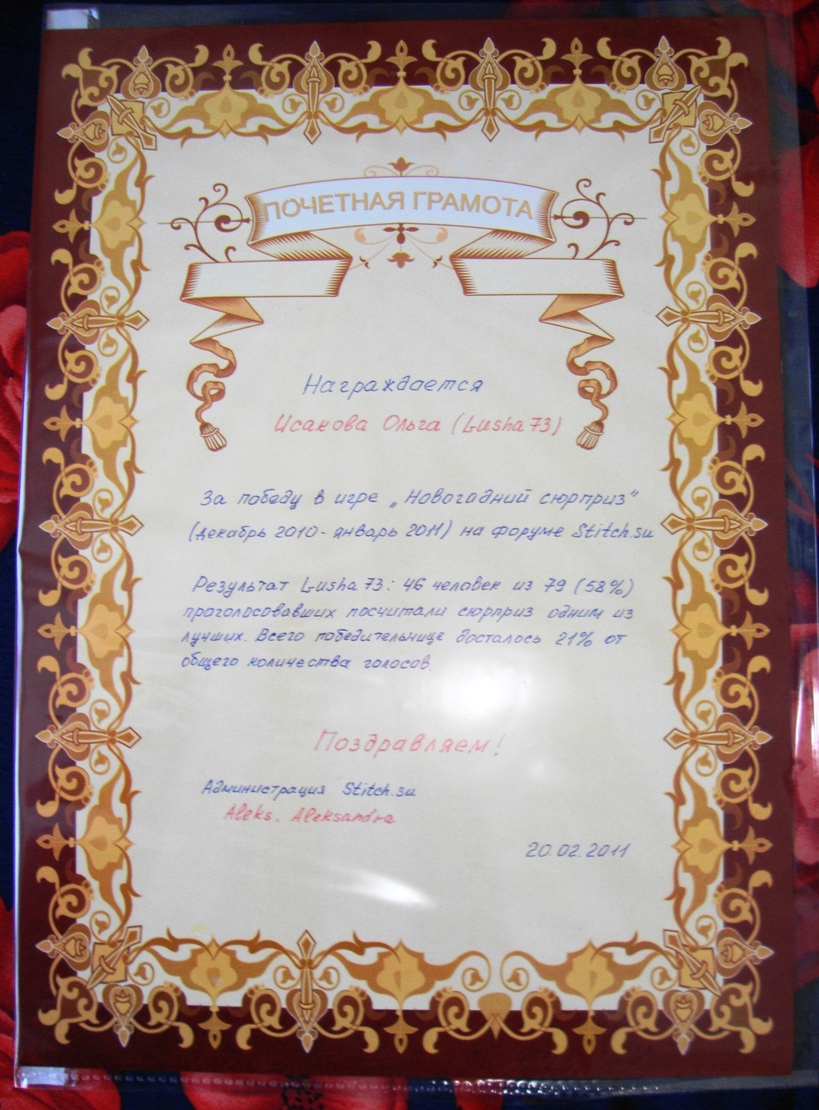 ПОЧЕТНАЯ ГРАМОТА
Награждается
Исакова Ольга (Lusha73)
За победу в игре „Новогодний сюрприз"
(декабрь 2010- январь 2011) на форуме Stitch.su
Результат Lusha73: 46 человек из 79 (58%)
проголосовавших посчитали сюрприз одним из
лучших. Всего победительнице досталось 21% от
общего количества голосов.
Поздравляем!
Администрация Stitch.su
Aleks, Aleksandra
20.02.2011